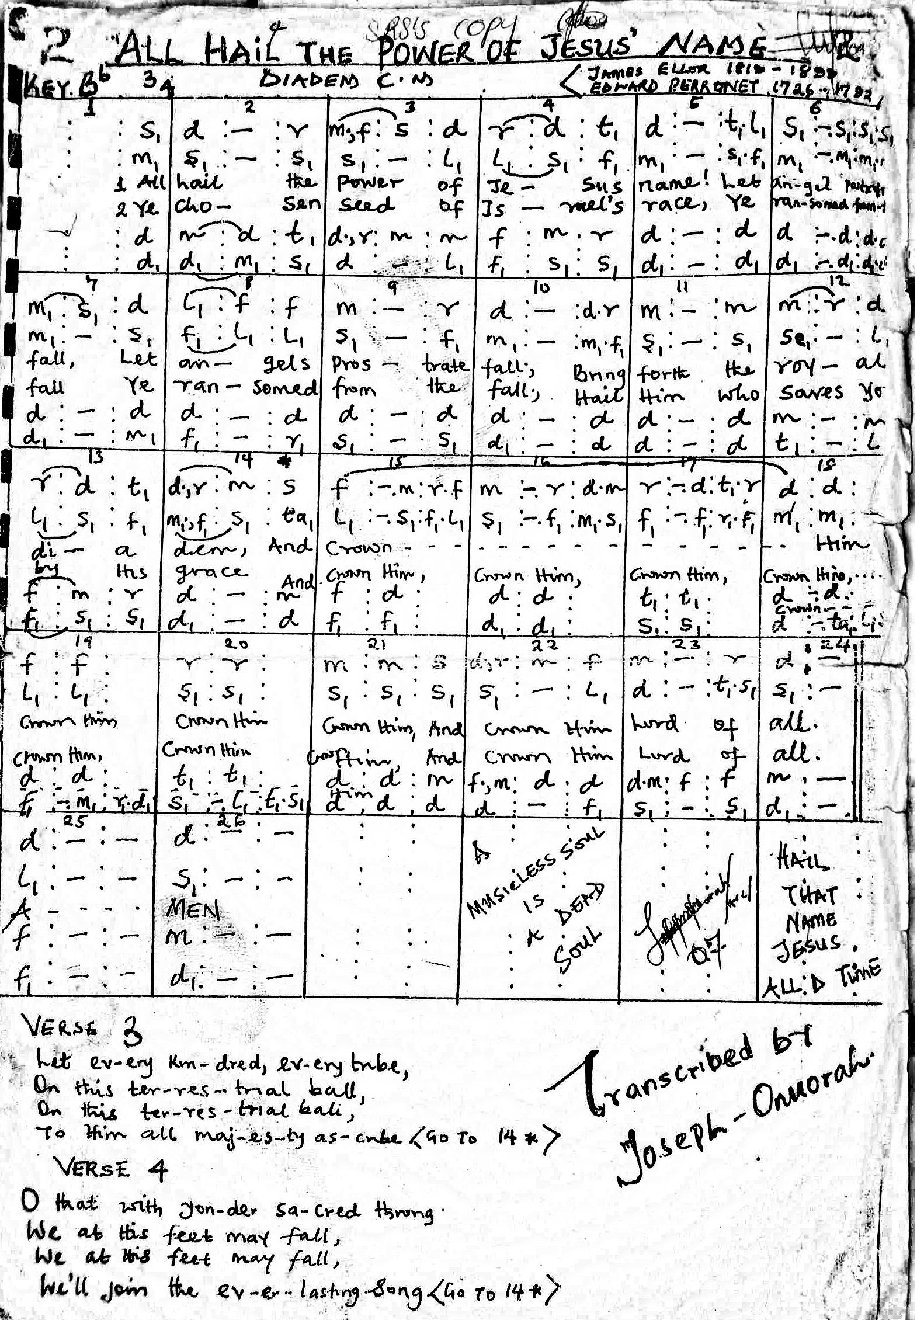 2 "ALL HAIL THE POWER OF JESUS' NAME
COPY
KEY. Bb 3/4 DIADEM C.M JAMES ELLOR 1819 - 1899
EDWARD PERRONET 1726 - 1792
1 2 3 4 5 6
: : s₁ d : – : r m,f : s : d r : d : t₁ d : – : t₁.l₁ s₁ : – . s₁ : s₁.s₁
: : m₁ s₁ : – : s₁ s₁ : – : l₁ l₁ : s₁ : f₁ m₁ : – : s₁.f₁ m₁ : – . m₁ : m₁.m₁
1 All hail the Power of Je – sus name! Let an-gel
2 Ye Cho – sen seed of Is – rael's race, Ye ran-somed
: : d m : d : t₁ d,r : m : m f : m : r d : – : d d : – . d : d.d
: : d₁ d₁ : m₁ : s₁ d : – : l₁ f₁ : s₁ : s₁ d₁ : – : d₁ d₁ : – . d₁ : d₁.d₁
7 8 9 10 11 12
m₁ : s₁ : d l₁ : f : f m : – : r d : – : d.r m : – : m m : r : d
m₁ : – : s₁ f₁ : l₁ : l₁ s₁ : – : f₁ m₁ : – : m₁.f₁ s₁ : – : s₁ se₁ : – : l₁
fall, Let an – gels Pros – trate fall, Bring forth the roy – al
fall Ye ran – somed from the fall, Hail Him who saves yo
d : – : d d : – : d d : – : d d : – : d d : – : d m : – : m
d₁ : – : m₁ f₁ : – : r₁ s₁ : – : s₁ d₁ : – : d d : – : d t₁ : – : l
13 14 * 15 16 17 18
r : d : t₁ d,r : m : s f : – . m : r.f m : – . r : d.m r : – . d : t₁.r d : d :
l₁ : s₁ : f₁ m₁,f₁ : s₁ : ta₁ l₁ : – . s₁ : f₁.l₁ s₁ : – . f₁ : m₁.s₁ f₁ : – . f₁ : r₁.f₁ m₁ : m₁ :
di – a dem, And Crown - - - - - - - - - - - - - - - Him
by His grace And Crown Him, Crown Him, Crown Him, Crown Him, ....
f : m : r d : – : m f : d : d : d : t₁ : t₁ : d : – d.
Crown - -
f₁ : s₁ : s₁ d₁ : – : d f₁ : f₁ : d₁ : d₁ : s₁ : s₁ : d : – . ta₁ : l₁.
19 20 21 22 23 24
f : f : r : r : m : m : s d,r : m : f m : – : r d : –
l₁ : l₁ : s₁ : s₁ : s₁ : s₁ : s₁ s₁ : – : l₁ d : – : t₁.s₁ s₁ : –
Crown Him Crown Him Crown Him, And Crown Him Lord of all.
Crown Him, Crown Him Him, And Crown Him Lord of all.
d : d : t₁ : t₁ : d : d : m f,m : d : d d.m : f : f m : –
Him
f₁ : – . m₁ : r₁.d₁ s₁ : – . l₁ : t₁.s₁ d : d : d d : – : f₁ s₁ : – : s₁ d₁ : –
25 26
d : – : – d : – : –
l₁ : – : – s₁ : – : –
A - - - - MEN
f : – : – m : – : –
f₁ : – : – d₁ : – : –
A
MUSICLESS SOUL
IS
A DEAD
SOUL
07
HAIL
THAT
NAME
JESUS.
ALL D TIME
VERSE 3
Let ev-ery kin-dred, ev-ery tribe,
On this ter-res-trial ball,
On this ter-res-trial ball,
To Him all maj-es-ty as-cribe <Go To 14 *>
VERSE 4
O that with yon-der sa-cred throng
We at His feet may fall,
We at His feet may fall,
We'll join the ev-er-lasting-song <Go To 14 *>
Transcribed by
Joseph-Onuorah.